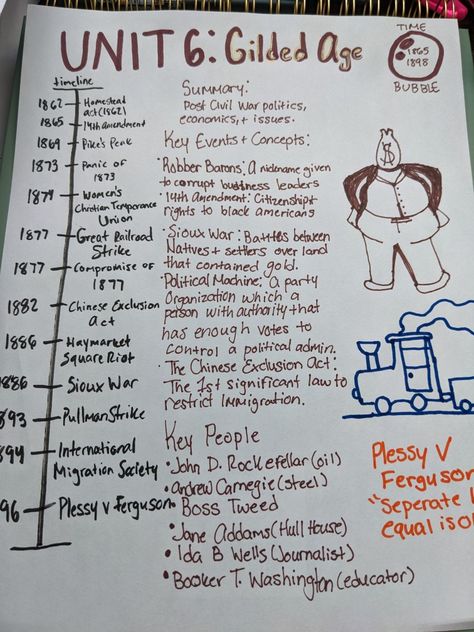 UNIT 6: Gilded Age
TIME
1865
1898
BUBBLE
timeline
1862 Homestead act (1862)
1865 14th amendment
1869 Pike's Peak
1873 Panic of 1873
1874 Women's Christian Temperance Union
1877 Great Railroad Strike
1877 Compromise of 1877
1882 Chinese Exclusion act
1886 Haymarket Square Riot
1886 Sioux War
893 Pullman Strike
894 International Migration Society
96 Plessy v Ferguson
Summary:
Post Civil War politics,
economics, + issues.
Key Events + Concepts:
• Robber Barons: A nickname given
to corrupt business leaders
• 14th Amendment: Citizenship +
rights to black americans
• Sioux War: Battles between
Natives + settlers over land
that contained gold.
• Political Machine: a party
Organization which a
person with authority that
has enough votes to
control a political admin.
• The Chinese Exclusion Act:
The 1st significant law to
restrict immigration.
Key People
• John D. Rockefellar (oil)
• Andrew Carnegie (steel)
• Boss Tweed
• Jane Addams (Hull House)
• Ida B Wells (Journalist)
• Booker T. Washington (educator)
$
Plessy V
Ferguson
"Seperate
equal is